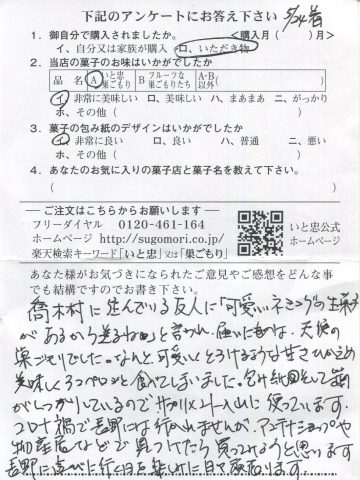 下記のアンケートにお答え下さい 5/24着
1. 御自分で購入されましたか。 <購入月( )月>
イ、自分又は家族が購入 ロ、いただき物
2. 当店の菓子のお味はいかがでしたか
品名 A いと忠巣ごもり B フルーツな巣ごもりたち A・B以外( )
イ、非常に美味しい ロ、美味しい ハ、まあまあ ニ、がっかり
ホ、その他( )
3. 菓子の包み紙のデザインはいかがでしたか
イ、非常に良い ロ、良い ハ、普通 ニ、悪い
ホ、その他( )
4. あなたのお気に入りの菓子店と菓子名を教えて下さい。
( )
ご注文はこちらからお願いします
フリーダイヤル 0120-461-164
ホームページ http://sugomori.co.jp/
楽天検索キーワード「いと忠」又は「巣ごもり」
いと忠公式
ホームページ
あなた様がお気づきになられたご意見やご感想をどんな事
でも結構ですのでお書き下さい。
喬木村に住んでいる友人に「可愛いネーミングの生菓子
があるから送るね」と言われ、届いたものは、天使の
巣ごもりでした。なんと可愛いくとろけるような甘さひかえめ
美味しく3つペロッと食べてしまいました。包み紙、そして箱
がしっかりしているのでサプリメント入れに使っています。
コロナ禍で長野には行かれませんが、アンテナショップや
物産店などで見つけたら買ってみようと思います。
長野に遊びに行く日を楽しみに日々頑張ります。